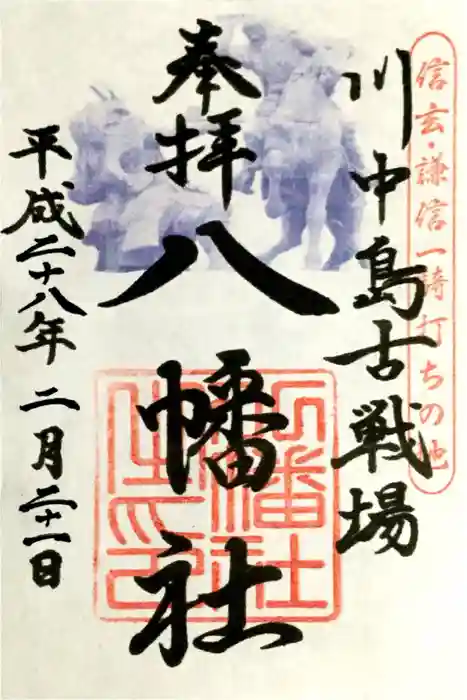 信玄・謙信一騎打ちの地
川中島古戦場
奉拝
八幡社
平成二十八年 二月二十一日